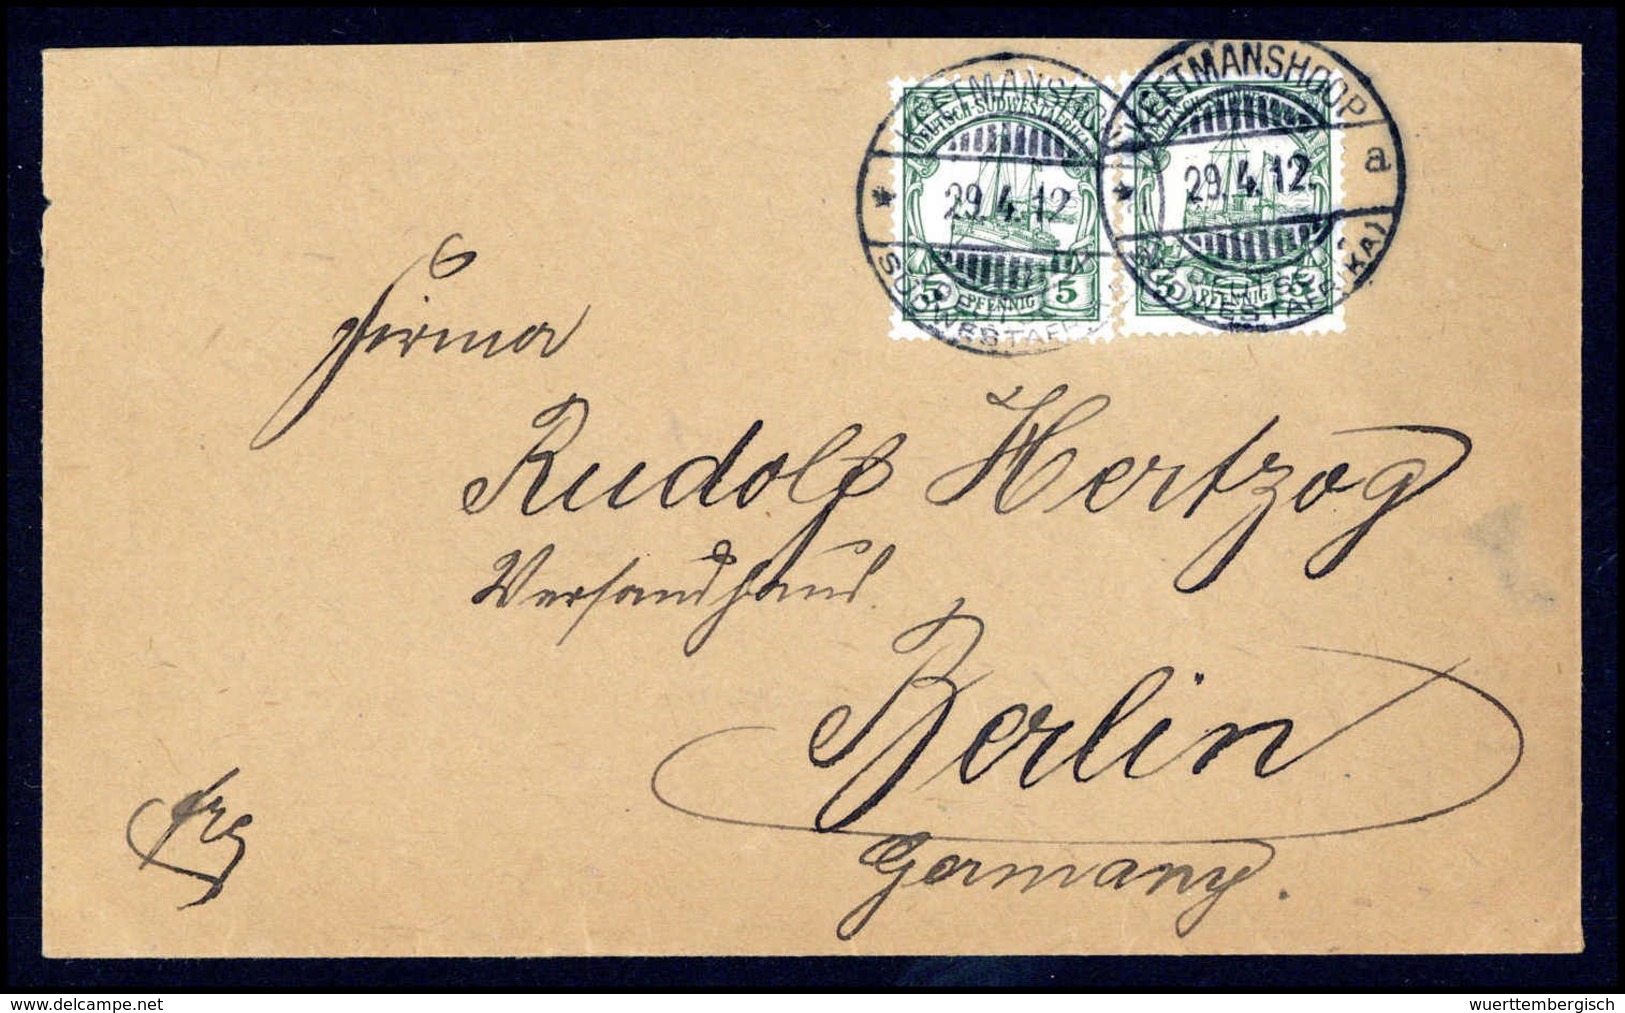 KEETMANSHOOP
KEETMANSHOOP
DEUTSCH-SÜDWESTAFRIKA
29.4.12
* 29.4.12. a
5 PFENNIG 5
5 PFENNIG 5
(DEUTSCH-
SÜDWESTAFRIKA)
Firma
Rudolf Hertzog
Versandhaus.
Berlin
Germany.
delcampe.net
wuerttembergisch